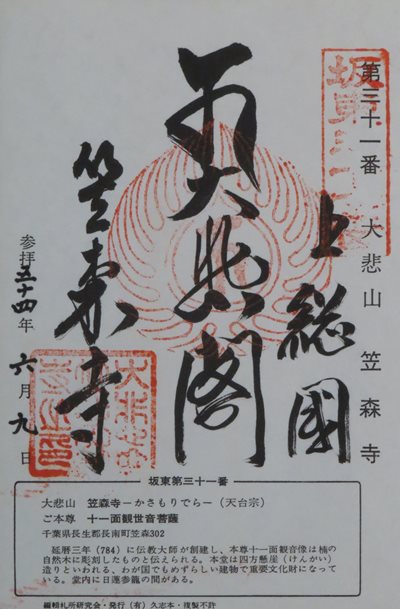 第三十一番 大悲山 笠森寺
坂東三
上総國
大悲閣
笠森寺
参拝五十四年六月九日
坂東第三十一番
大悲山 笠森寺－かさもりでら－(天台宗)
ご本尊 十一面観世音菩薩
千葉県長生郡長南町笠森302
延暦三年(784)に伝教大師が創建し、本尊十一面観音像は楠の
自然木に彫刻したものと伝えられる。本堂は四方懸崖(けんがい)
造りといわれる、わが国でもめずらしい建物で重要文化財になって
いる。堂内に日蓮参籠の間がある。
編輯札所研究会・発行(有)久志本・複製不許